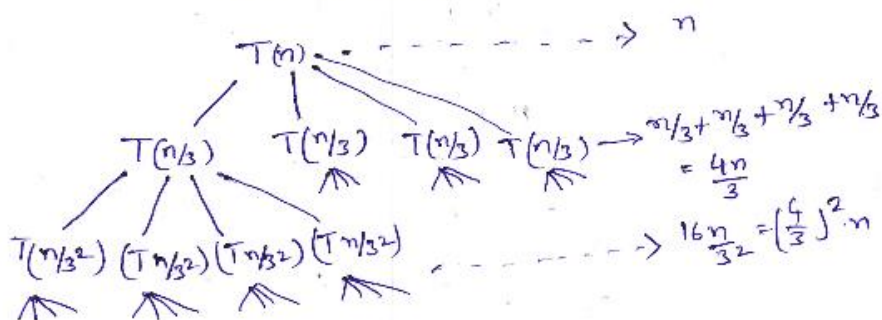 T(n) - - - - -> n
T(n/3) T(n/3) T(n/3) T(n/3) → n/3 + n/3 + n/3 + n/3
= 4n/3
T(n/3²) (T n/3²) (T n/3²) (T n/3²) - - - -> 16n/3² = (4/3)².n